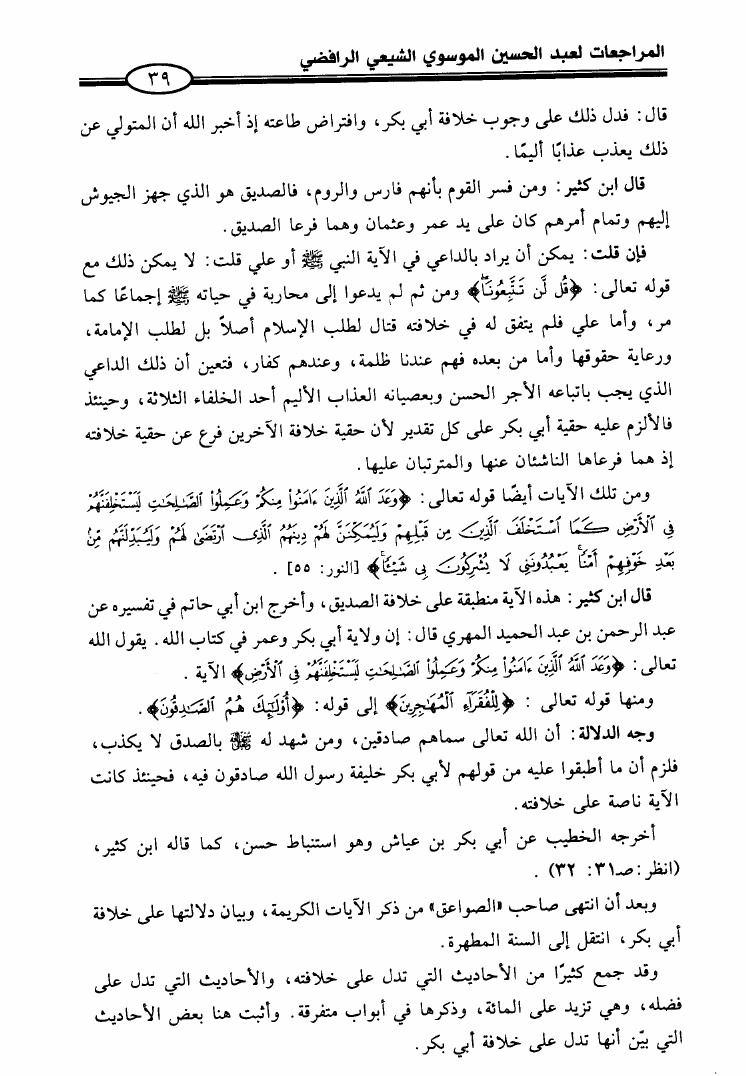 المراجعات لعبد الحسين الموسوي الشيعي الرافضي
٣٩
قال: فدل ذلك على وجوب خلافة أبي بكر، وافتراض طاعته إذ أخبر الله أن المتولي عن
ذلك يعذب عذابًا أليمًا.
قال ابن كثير: ومن فسر القوم بأنهم فارس والروم، فالصديق هو الذي جهز الجيوش
إليهم وتمام أمرهم كان على يد عمر وعثمان وهما فرعا الصديق.
فإن قلت: يمكن أن يراد بالداعي في الآية النبي ﷺ أو علي قلت: لا يمكن ذلك مع
قوله تعالى: ﴿قُل لَّن تَتَّبِعُونَاۖ﴾ ومن ثم لم يدعوا إلى محاربة في حياته ﷺ إجماعًا كما
مر، وأما علي فلم يتفق له في خلافته قتال لطلب الإسلام أصلاً بل لطلب الإمامة،
ورعاية حقوقها وأما من بعده فهم عندنا ظلمة، وعندهم كفار، فتعين أن ذلك الداعي
الذي يجب باتباعه الأجر الحسن وبعصيانه العذاب الأليم أحد الخلفاء الثلاثة، وحينئذ
فالألزم عليه حقية أبي بكر على كل تقدير لأن حقية خلافة الآخرين فرع عن حقية خلافته
إذ هما فرعاها الناشئان عنها والمترتبان عليها.
ومن تلك الآيات أيضًا قوله تعالى: ﴿وَعَدَ ٱللَّهُ ٱلَّذِينَ ءَامَنُوا۟ مِنكُمْ وَعَمِلُوا۟ ٱلصَّـٰلِحَـٰتِ لَيَسْتَخْلِفَنَّهُمْ
فِى ٱلْأَرْضِ كَمَا ٱسْتَخْلَفَ ٱلَّذِينَ مِن قَبْلِهِمْ وَلَيُمَكِّنَنَّ لَهُمْ دِينَهُمُ ٱلَّذِى ٱرْتَضَىٰ لَهُمْ وَلَيُبَدِّلَنَّهُم مِّنۢ
بَعْدِ خَوْفِهِمْ أَمْنًاۚ يَعْبُدُونَنِى لَا يُشْرِكُونَ بِى شَيْـًٔاۚ﴾ [النور: ٥٥] .
قال ابن كثير: هذه الآية منطبقة على خلافة الصديق، وأخرج ابن أبي حاتم في تفسيره عن
عبد الرحمن بن عبد الحميد المهري قال: إن ولاية أبي بكر وعمر في كتاب الله. يقول الله
تعالى: ﴿وَعَدَ ٱللَّهُ ٱلَّذِينَ ءَامَنُوا۟ مِنكُمْ وَعَمِلُوا۟ ٱلصَّـٰلِحَـٰتِ لَيَسْتَخْلِفَنَّهُمْ فِى ٱلْأَرْضِ﴾ الآية .
ومنها قوله تعالى : ﴿لِلْفُقَرَآءِ ٱلْمُهَـٰجِرِينَ﴾ إلى قوله: ﴿أُو۟لَـٰٓئِكَ هُمُ ٱلصَّـٰدِقُونَ﴾.
وجه الدلالة: أن الله تعالى سماهم صادقين، ومن شهد له ﷺ بالصدق لا يكذب،
فلزم أن ما أطبقوا عليه من قولهم لأبي بكر خليفة رسول الله صادقون فيه، فحينئذ كانت
الآية ناصة على خلافته.
أخرجه الخطيب عن أبي بكر بن عياش وهو استنباط حسن، كما قاله ابن كثير،
(انظر: صـ٣١: ٣٢) .
وبعد أن انتهى صاحب «الصواعق» من ذكر الآيات الكريمة، وبيان دلالتها على خلافة
أبي بكر، انتقل إلى السنة المطهرة.
وقد جمع كثيرًا من الأحاديث التي تدل على خلافته، والأحاديث التي تدل على
فضله، وهي تزيد على المائة، وذكرها في أبواب متفرقة. وأثبت هنا بعض الأحاديث
التي بيّن أنها تدل على خلافة أبي بكر.